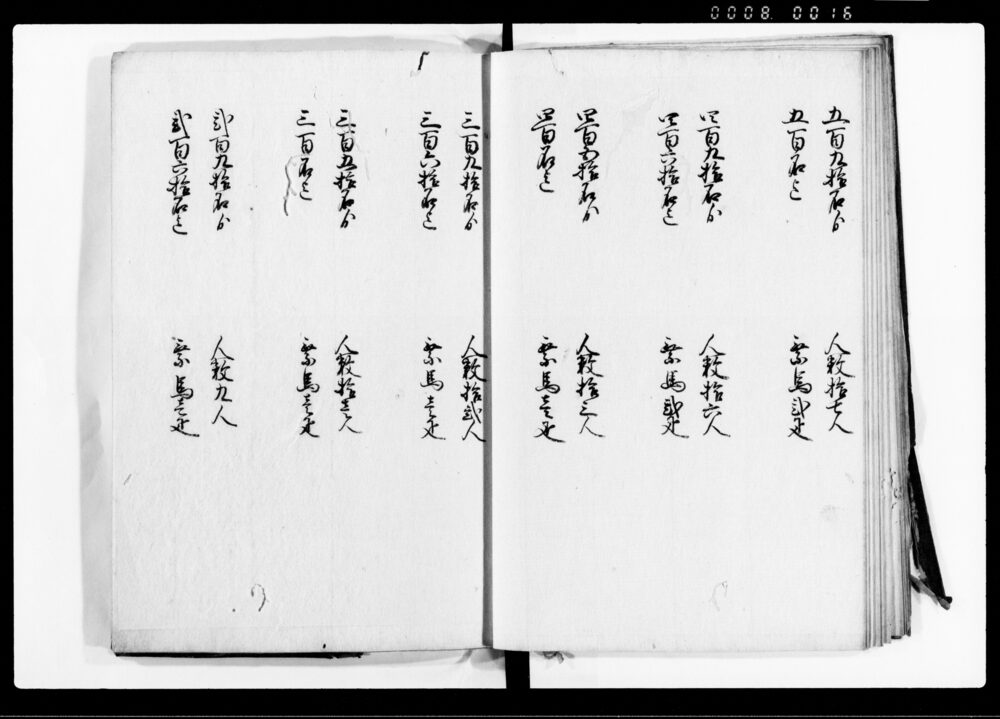 0008 0016
五百九拾石ゟ
五百石迄
人数拾七人
乗馬弐疋
四百九拾石ゟ
四百六拾石迄
人数拾六人
乗馬弐疋
四百五拾石ゟ
四百石迄
人数拾三人
乗馬壱疋
三百九拾石ゟ
三百六拾石迄
人数拾弐人
乗馬壱疋
三百五拾石ゟ
三百石迄
人数拾壱人
乗馬壱疋
弐百九拾石ゟ
弐百六拾石迄
人数九人
乗馬壱疋